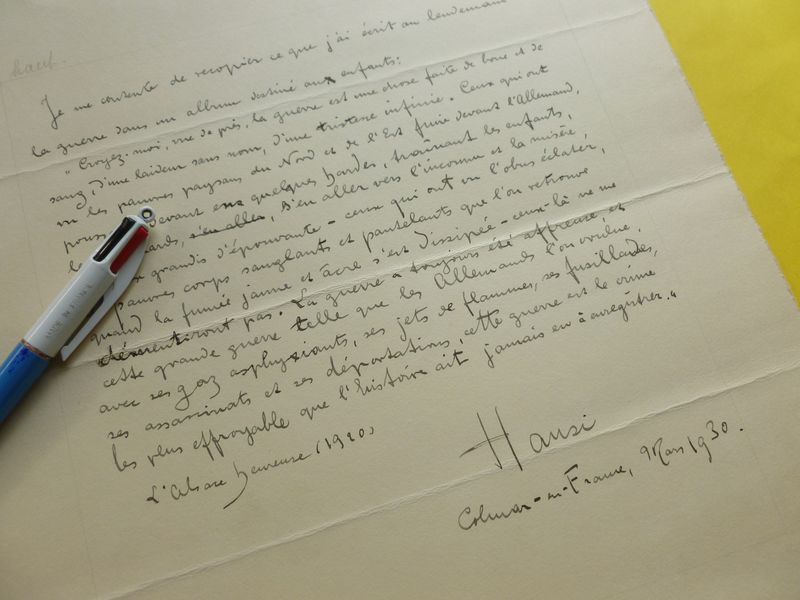 haut.
Je me contente de recopier ce que j'ai écrit au lendemain
la guerre dans un album destiné aux enfants:
"Croyez-moi, vue de près, la guerre est une chose faite de boue et de
sang, d'une laideur sans nom, d'une tristesse infinie. Ceux qui ont
vu les pauvres paysans du Nord et de l'Est fuire devant l'Allemand,
pouss devant eux quelques hardes, traînant les enfants,
les ards, s'en aller, s'en aller vers l'inconnu et la misère,
grandis d'épouvante - ceux qui ont vu l'obus éclater,
pauvres corps sanglants et pantelants que l'on retrouve
quand la fumée jaune et âcre s'est dissipée - ceux-là ne me
démentiront pas. La guerre a toujours été affreuse, et
cette grande guerre telle que les Allemands l'on voulue,
avec ses gaz asphyxiants, ses jets de flammes, ses fusillades,
ses assassinats et ses déportations, cette guerre est le crime
les plus effroyable que l'histoire ait jamais eu à enregistrer."
L'Alsace heureuse (1920)
Hansi
Colmar-en-France, 9 Mars 1930.
MADE IN FRANCE